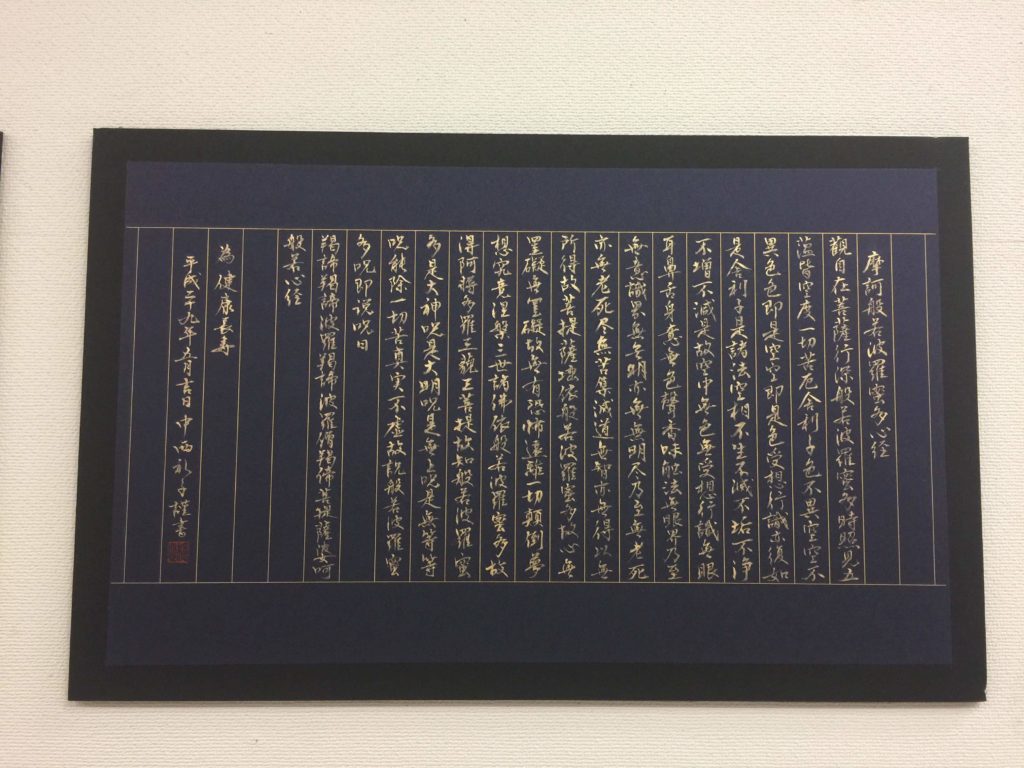 摩訶般若波羅蜜多心経
観自在菩薩行深般若波羅蜜多時照見五
蘊皆空度一切苦厄舎利子色不異空空不
異色色即是空空即是色受想行識亦復如
是舎利子是諸法空相不生不滅不垢不浄
不増不減是故空中無色無受想行識無眼
耳鼻舌身意無色聲香味触法無眼界乃至
無意識界無無明亦無無明尽乃至無老死
亦無老死尽無苦集滅道無智亦無得以無
所得故菩提薩埵依般若波羅蜜多故心無
罣礙無罣礙故無有恐怖遠離一切顛倒夢
想究竟涅槃三世諸佛依般若波羅蜜多故
得阿耨多羅三藐三菩提故知般若波羅蜜
多是大神呪是大明呪是無上呪是無等等
呪能除一切苦真実不虚故説般若波羅蜜
多呪即説呪曰
羯諦羯諦波羅羯諦波羅僧羯諦菩提薩婆訶
般若心経
為健康長寿
平成二十九年五月吉日 中西 子謹書